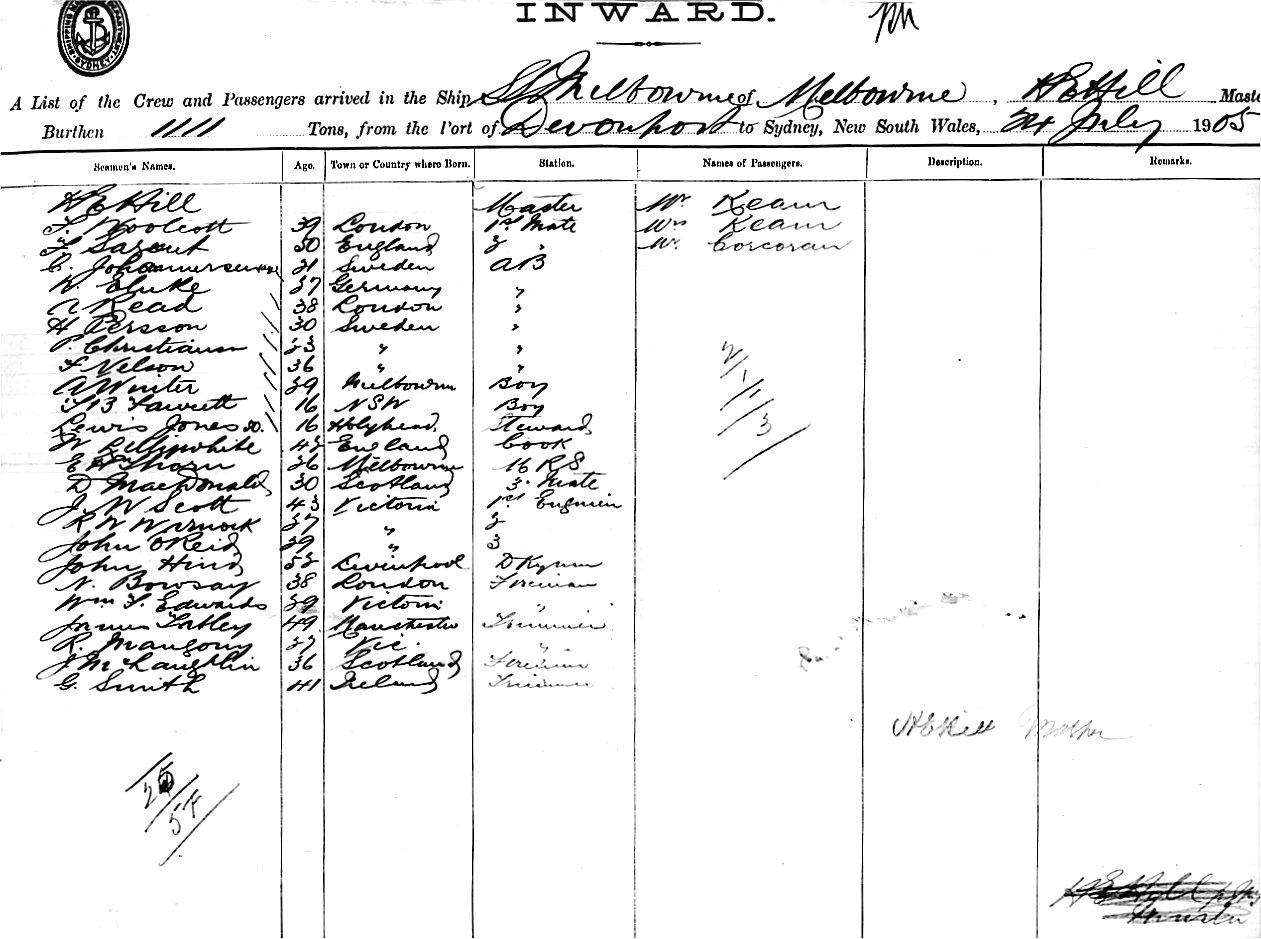 SYDNEY
INWARD.
A List of the Crew and Passengers arrived in the Ship SS Melbourne of Melbourne, H E Hill Maste
Burthen 1111 Tons, from the Port of Devonport to Sydney, New South Wales, 24 July 1905
Seamen's Names. Age. Town or Country where Born. Station. Names of Passengers. Description. Remarks.
H E Hill Master Mr Keam
T. Woolcott 39 London 1st Mate Mrs Keam
F Sargent 50 England 2 " Mr Corcoran
C. 21 Sweden AB
37 Germany "
A Read 38 London "
H Persson 30 Sweden "
P. Christiansen 23 " "
F Nelson 36 " "
A Winter 29 Melbourne Boy
Fawcett 16 NSW Boy
Lewis Jones 16 Holyhead Steward
W Lillywhite 42 England Cook
E H Thorn 26 Melbourne
D MacDonald 30 Scotland 3 Mate
J W Scott 43 Victoria 1st Engineer
R W 37 " 2
John O'Reid 29 " 3
John Hind 52 Liverpool
N. Bowsay 38 London Fireman
Wm T. Edwards 29 Victoria "
James Tatley 49 Manchester Trimmer
R. Mangony 27 Vic. "
J McLaughlin 36 Scotland Fireman
G. Smith 41 Ireland Trimmer
2/1/1/3
H E Hill Master
25/5F
H E Hill
Master